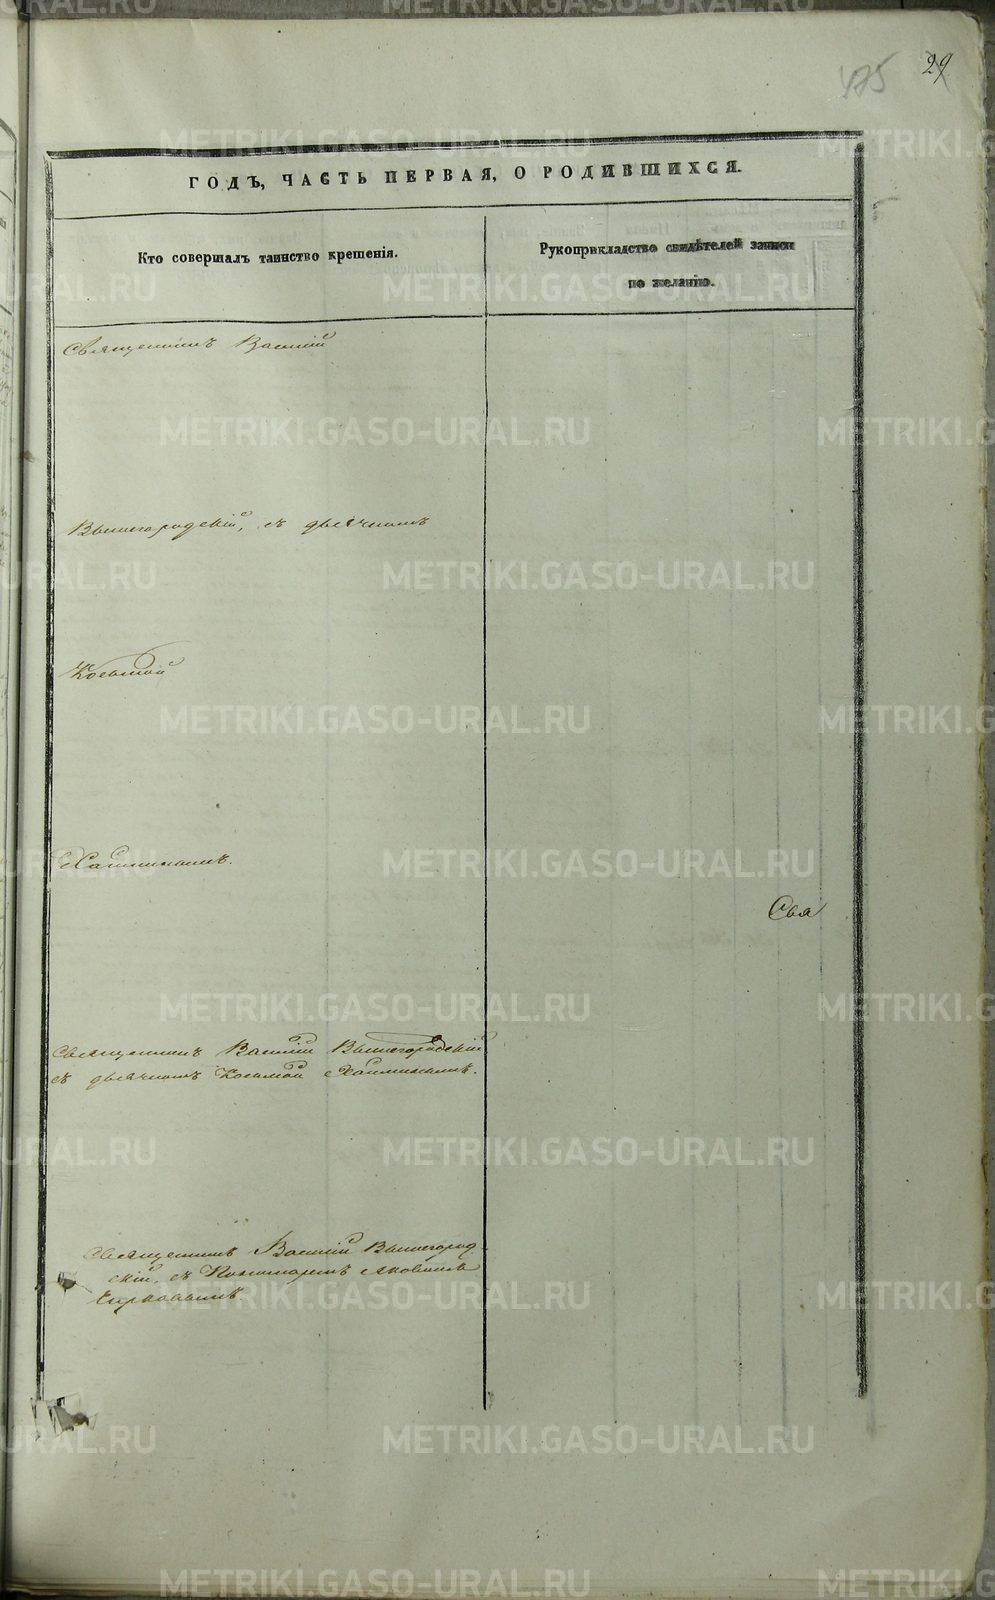 475 29
ГОДЪ, ЧАСТЬ ПЕРВАЯ, О РОДИВШИХСЯ.
Кто совершалъ таинство крещенія.
Рукоприкладство свидѣтелей записи
по желанію.
Священникъ Василій
Вышегородскій, съ дьячкомъ
Козьмой
Священникъ Василій Вышегородскій
съ дьячкомъ Козьмой
Свя
Священникъ Василій Вышегород
скій, съ Пономаремъ Яковомъ
METRIKI.GASO-URAL.RU